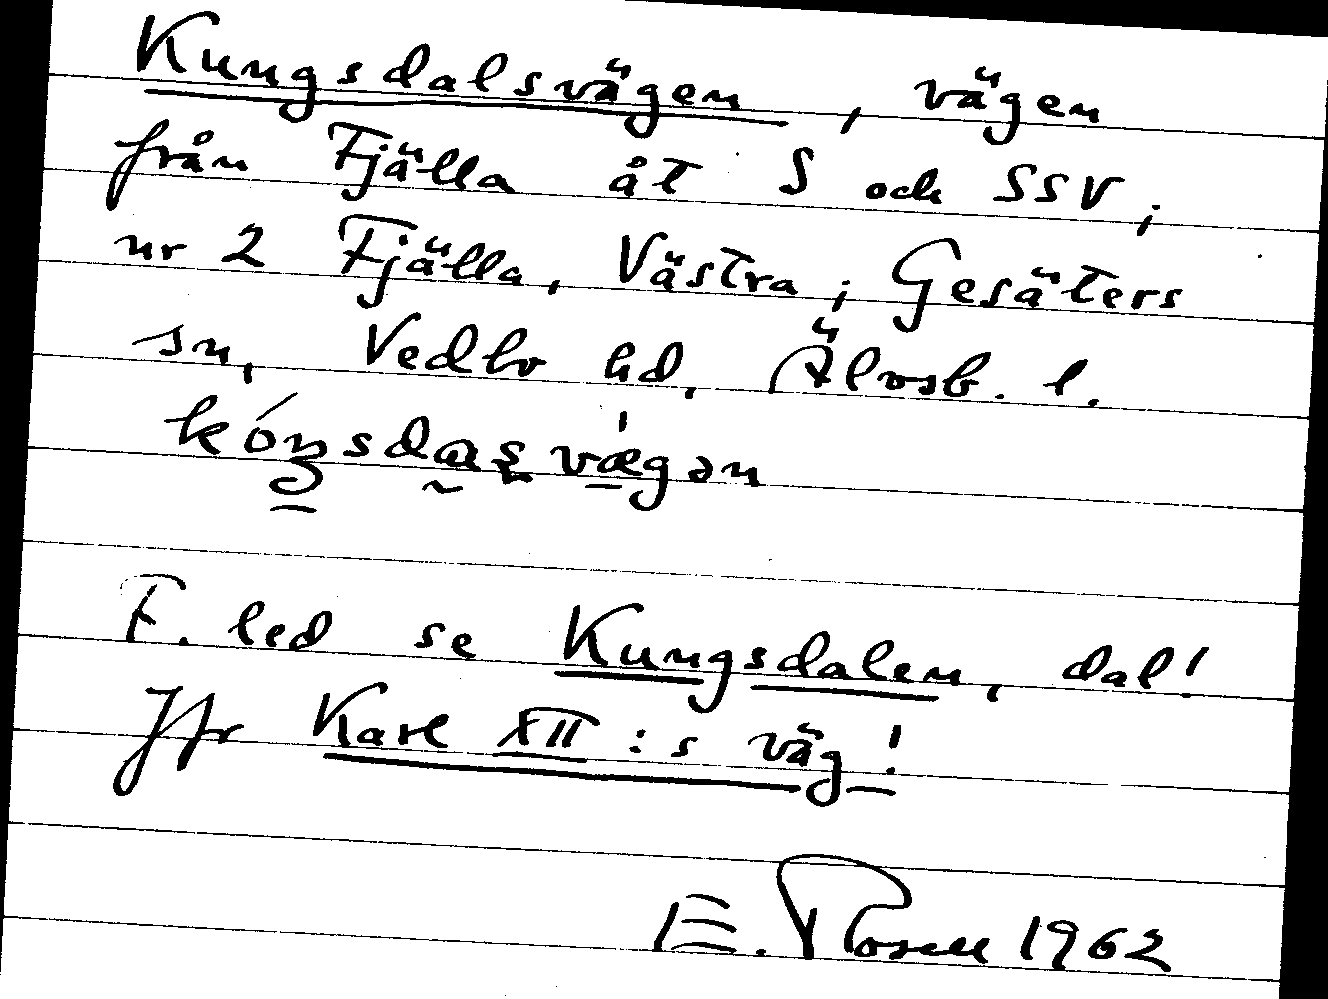 Kungsdalsvägen, vägen
från Fjälla åt S och SSV;
nr 2 Fjälla, Västra; Gesäters
sn, Vedbo hd, Älvsb. l.
F. led se Kungsdalen, dal!
Jfr Karl XII:s väg!
E. Rosell 1962